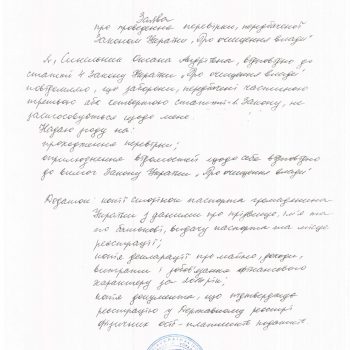 Заява
про проведення перевірки, передбаченої
Законом України „Про очищення влади"
Я, Оксана Андріївна, відповідно до
статті 4 Закону України „Про очищення влади"
повідомляю, що заборони, передбачені частиною
третьою або четвертою статті 1 Закону, не
застосовуються щодо мене.
Надаю згоду на:
проходження перевірки;
оприлюднення відомостей щодо себе відповідно
до вимог Закону України „Про очищення влади"
Додаток: копії сторінок паспорта громадянина
України з даними про прізвище, ім'я та
по батькові, видачу паспорта та місце
реєстрації;
копія декларації про майно, доходи,
витрати і зобов'язання фінансового
характеру за рік;
копія документа, що підтверджує
реєстрацію у Державному реєстрі
фізичних осіб - платників податків